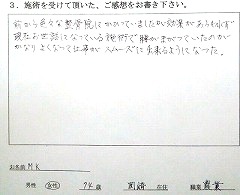 3. 施術を受けて頂いた、ご感想をお書き下さい。
前から色々な整骨院にかかっていましたが効果があらわれず
現在お世話になっている施術で腰がまがっていたのが
かなりよくなって仕事が スムーズに出来るようになった。
お名前 M K
男性 女性 74 歳 在住 職業 農業